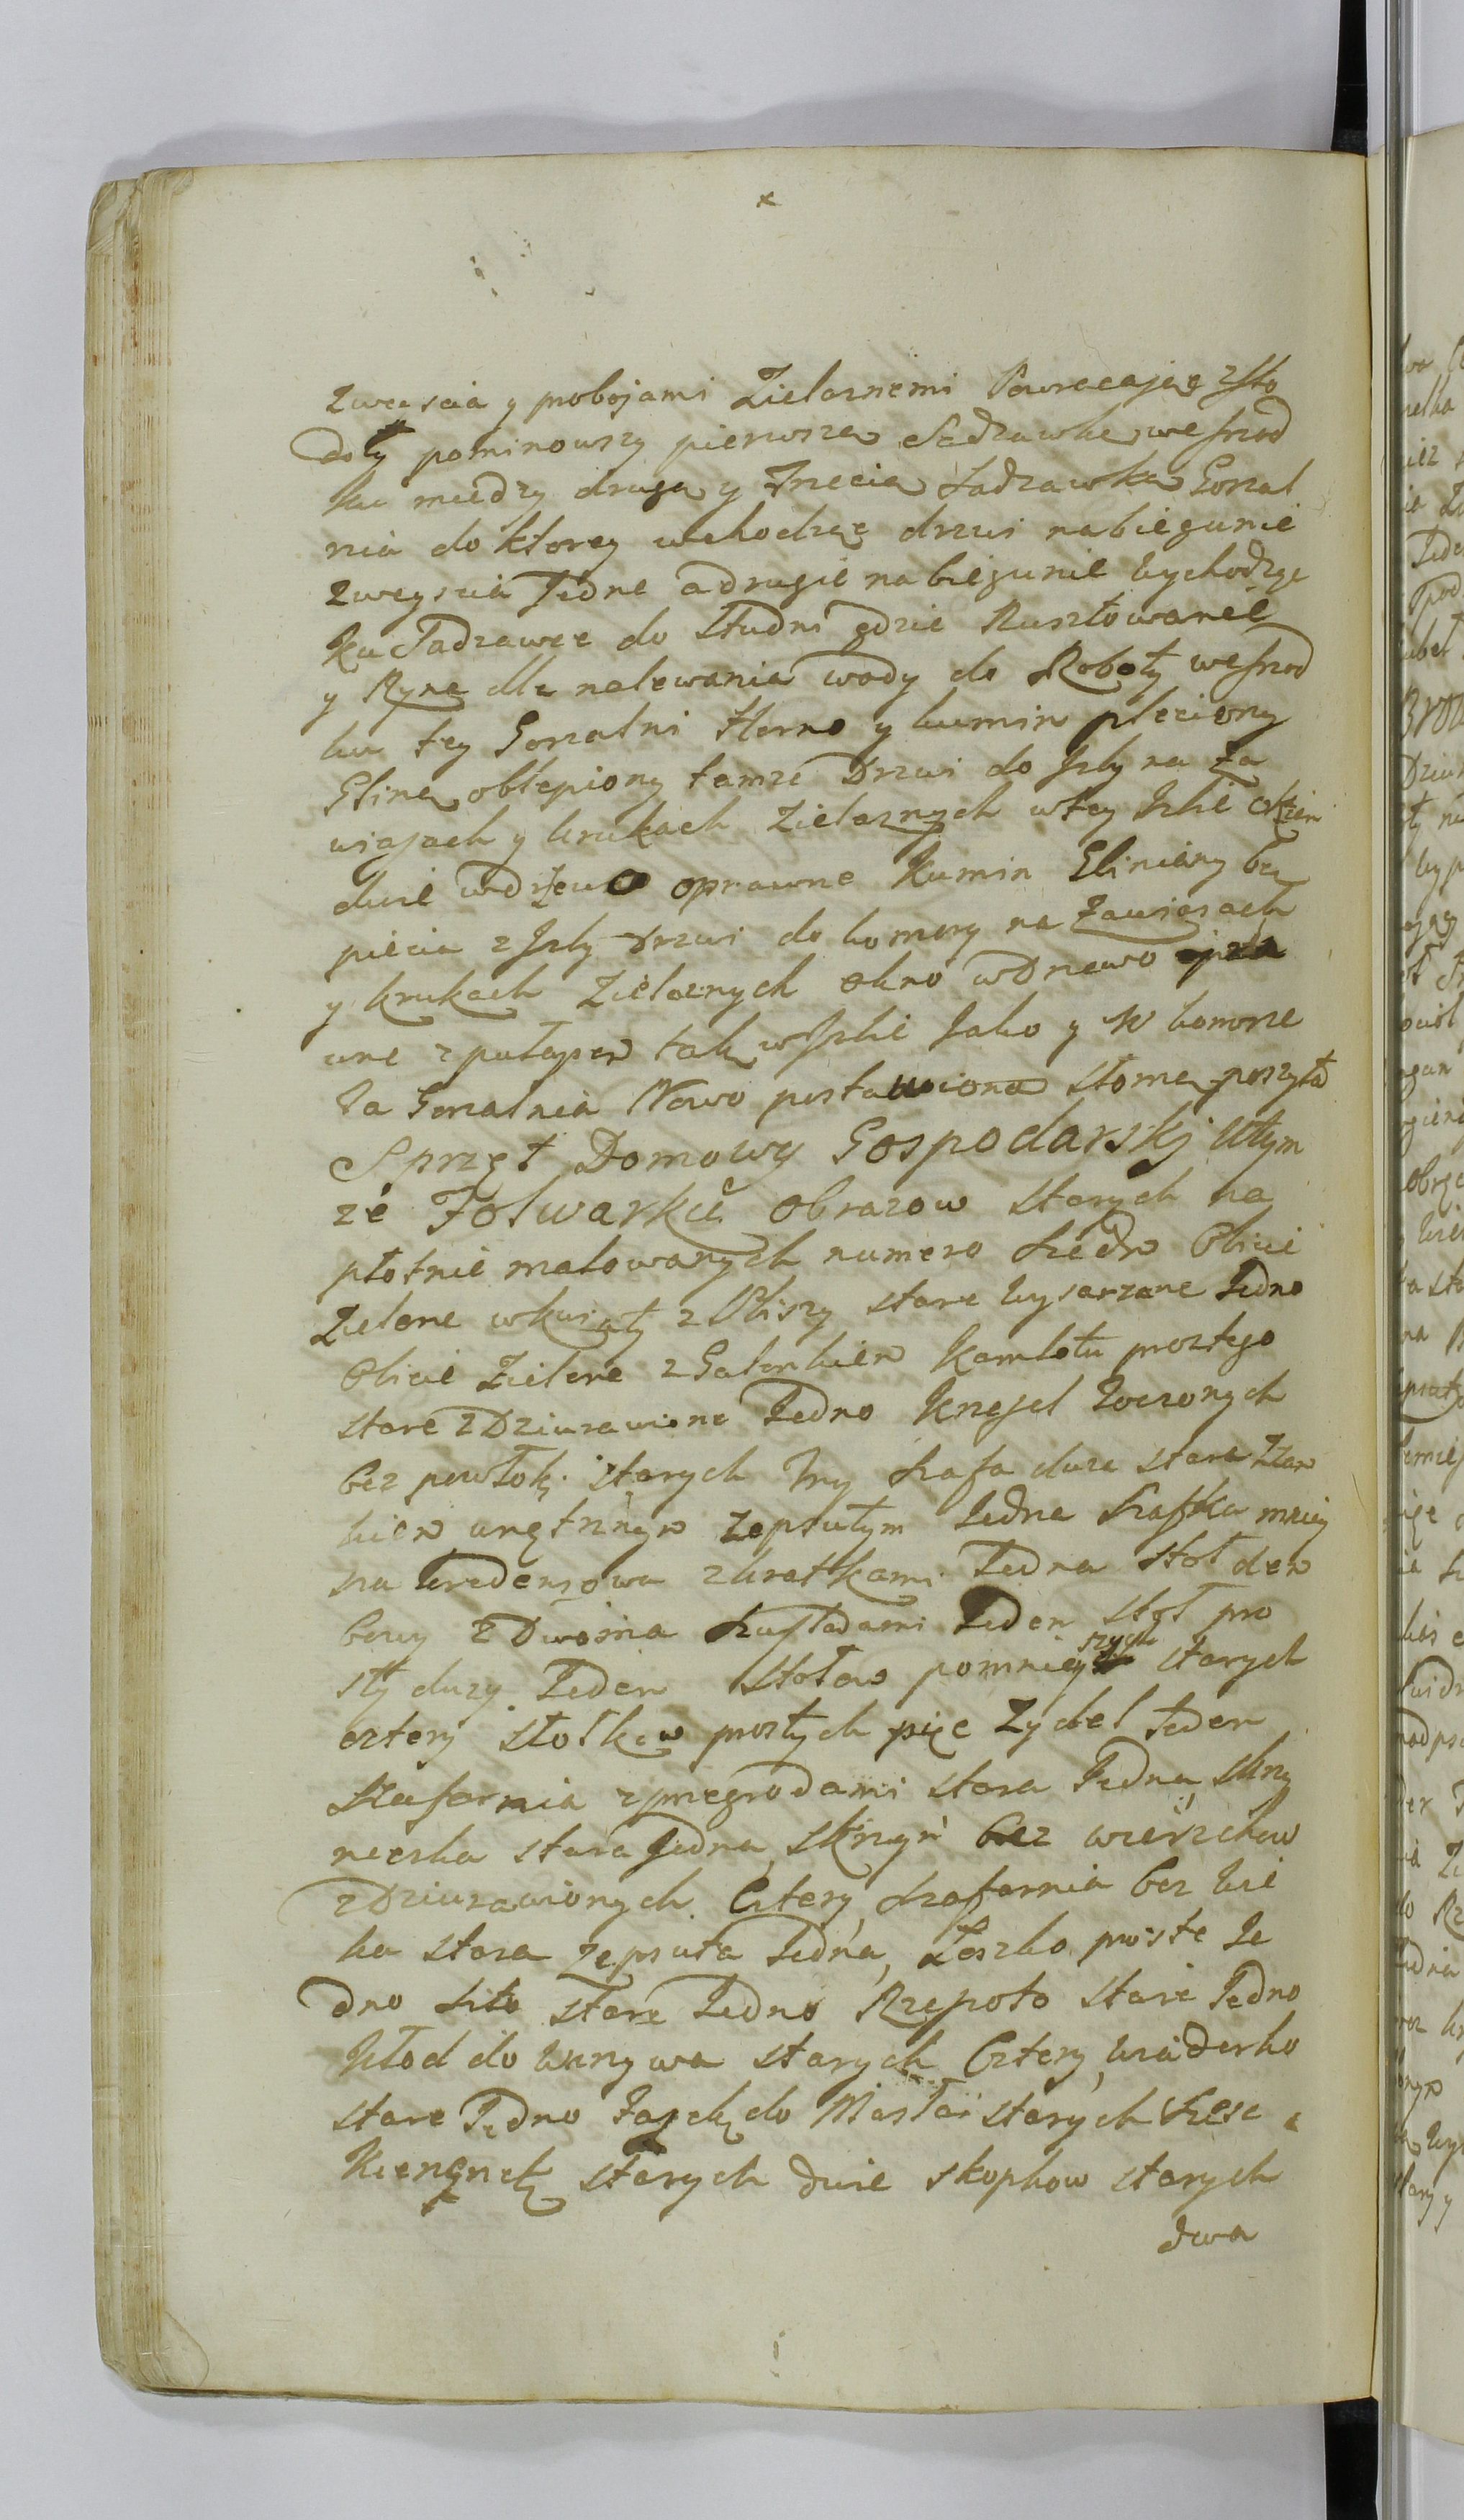 x
zweyscia y probojami Zielaznemi Powracaiąc zsto
doły pominowszy pierwszą Sadzawkę weszrod
ku miedzy drugą y Trzecią Sadzawką Gorzal
nia do ktorey wchodząc drzwi nabiegunie
zweyscia Jedne adrugie nabiegunie wychodząc
Ku Sadzawce do Studni gdzie Rusztowanie
y Ryna dla nalewania wody do Roboty weszrod
ku tey Gorzalni Horno y kumin pleciony
Gliną oblepiony tamze Drzwi do Jzby na Za
wiasach y krukach Zielaznych wtey Jzbie Okien
dwie wdrzewo oprawne Kumin Gliniany bez
pieca z Jzby drzwi do komory na Zawiasach
y krukach Zielaznych okno wDrzewo opra
wne zpułapem tak wJzbie Jako y W komorze
Ta Gorzalnia Nowo postawiona słomą poszyta
Sprzęt Domowy Gospodarskj Wtym
ze Folwarku Obrazow starych na
płotnie malowanych numero siedm Obicie
Zielone wkwiaty z Pliszy stare wyszarzane Jedno
Obicie Zielone z Galonkiem Kamlotu prostego
stare zDziurawione Jedno Krzeseł Toczonych
bez powłoki starych Trzy Szafa duza stara Zzam
kiem wnętrznym zepsutym Jedna Szafka mniey
sza kredensowa zkratkami Jedna Stoł dem
bowy zDwoma Szufladami Jeden Stoł pro
sty duzy Jeden Stołow pomnieyszych starych
cztery Stołkow prostych pięc Zydel Jeden
Szafarnia zprzegrodami stara Jedna, skrzy
neczka stara Jedna, Skrzyń bez wierzchow
zDziurawionych Cztery, Szafarnia bez Wie
ka stara zepsuta Jedna, Łoszko proste Je
dno Sito stare Jedno Rzepoto stare Jedno
Kłod do warzywa starych Cztery, wiaderko
stare Jedno Fasek do Masła starych szesc
Kierznek starych dwie skopkow starych
dwa